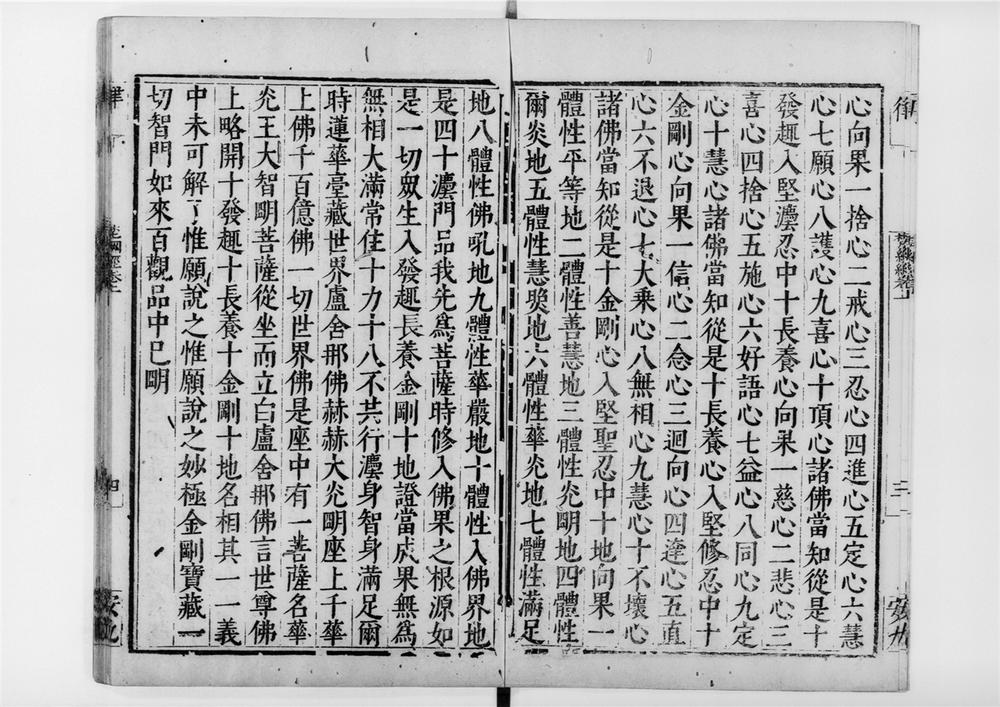 律
梵網經卷上
三
心向果一捨心二戒心三忍心四進心五定心六慧
心七願心八護心九喜心十頂心諸佛當知從是十
發趣入堅灋忍中十長養心向果一慈心二悲心三
喜心四捨心五施心六好語心七益心八同心九定
心十慧心諸佛當知從是十長養心入堅修忍中十
金剛心向果一信心二念心三迴向心四達心五直
心六不退心七大乘心八無相心九慧心十不壞心
諸佛當知從是十金剛心入堅聖忍中十地向果一
體性平等地二體性善慧地三體性光朙地四體性
爾炎地五體性慧㷼地六體性華光地七體性滿足
地八體性佛吼地九體性華嚴地十體性入佛界地
是四十灋門品我先爲菩薩時修入佛果之根源如
是一切眾生入發趣長養金剛十地證當成果無爲
無相大滿常住十力十八不共行灋身智身滿足爾
時蓮華臺藏世界盧舍那佛赫赫大光朙座上千華
上佛千百億佛一切世界佛是座中有一菩薩名華
光王大智朙菩薩從坐而立白盧舍那佛言世尊佛
上略開十發趣十長養十金剛十地名相其一一義
中未可解了惟願說之惟願說之妙極金剛寶藏一
切智門如來百觀品中已朙
四